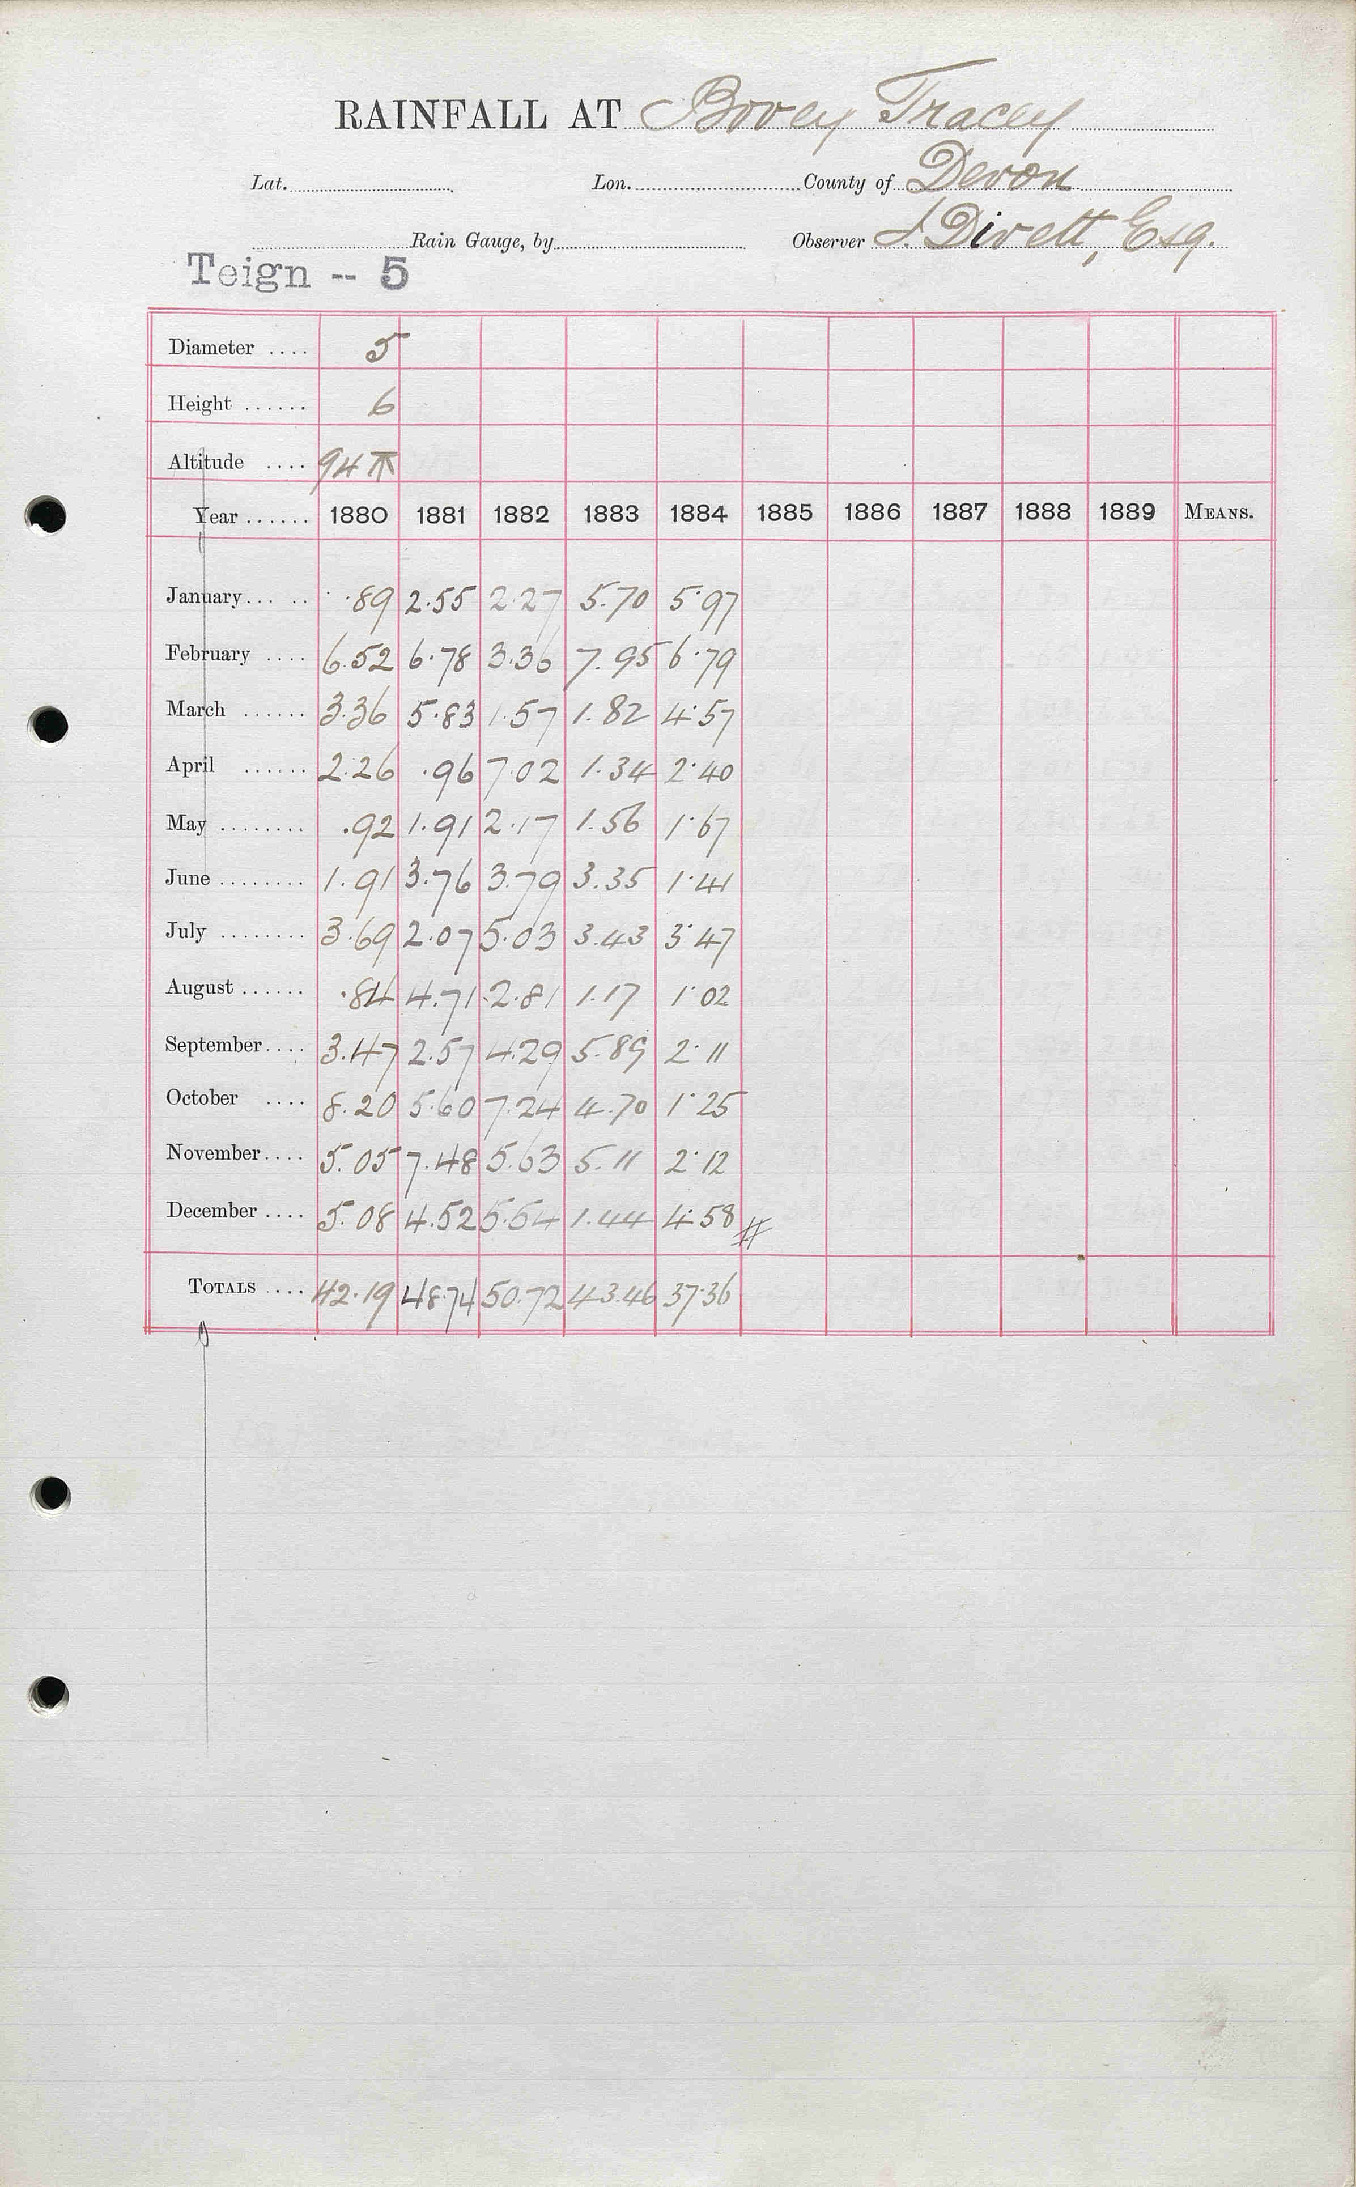 RAINFALL AT Bovey Tracey
Lat. Lon. County of Devon
Rain Gauge, by Observer Divett, Esq.
Teign -- 5
Diameter .... 5
Height ...... 6
Altitude .... 94
Year ...... 1880 1881 1882 1883 1884 1885 1886 1887 1888 1889 MEANS.
January ..... .89 2.55 2.27 5.70 5.97
February .... 6.52 6.78 3.36 7.95 6.79
March ...... 3.36 5.83 1.57 1.82 4.57
April ...... 2.26 .96 7.02 1.34 2.40
May ........ .92 1.91 2.17 1.56 1.67
June ........ 1.91 3.76 3.79 3.35 1.41
July ........ 3.69 2.07 5.03 3.43 3.47
August ...... .84 4.71 2.81 1.17 1.02
September .... 3.47 2.57 4.29 5.89 2.11
October .... 8.20 5.60 7.24 4.70 1.25
November .... 5.05 7.48 5.63 5.11 2.12
December .... 5.08 4.52 5.54 1.44 4.58 #
TOTALS .... 42.19 48.74 50.72 43.46 37.36